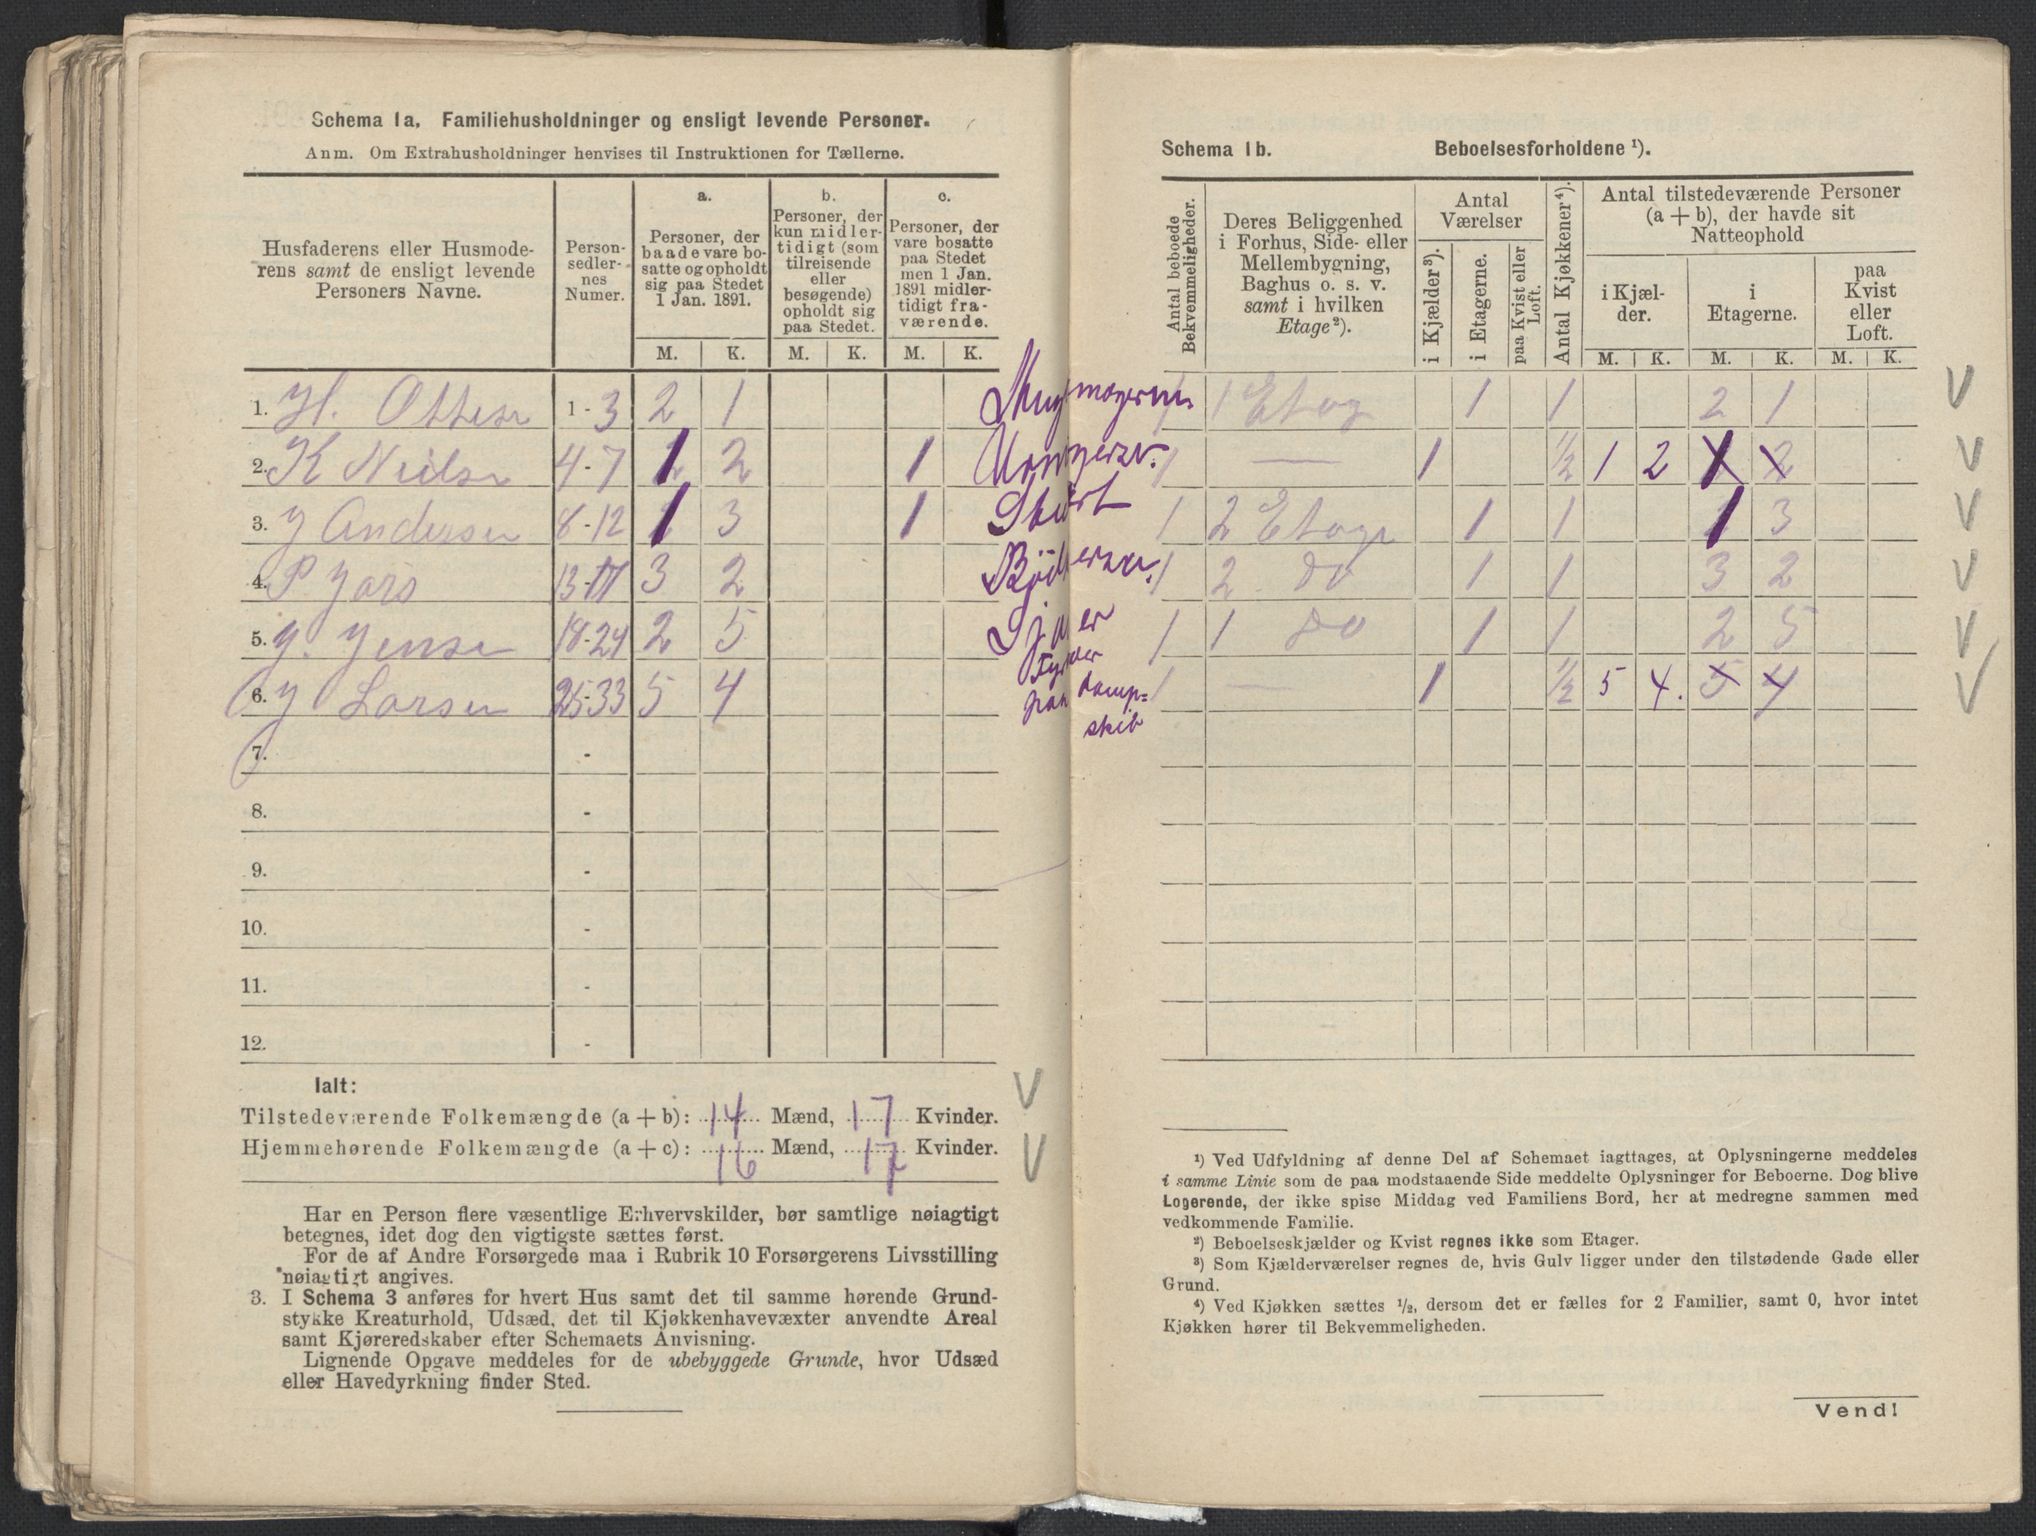 Schema 1a. Familiehusholdninger og ensligt levende Personer.
Anm. Om Extrahusholdninger henvises til Instruktionen for Tællerne.
Husfaderens eller Husmode-
rens samt de ensligt levende
Personers Navne.
Person-
sedler-
nes
Numer.
a.
Personer, der
baade vare bo-
satte og opholdt
sig paa Stedet
1 Jan. 1891.
b.
Personer, der
kun midler-
tidigt (som
tilreisende
eller
besøgende)
opholdt sig
paa Stedet.
c.
Personer, der
vare bosatte
paa Stedet
men 1 Jan.
1891 midler-
tidigt fra-
værende.
M. K. M. K. M. K.
1. H. Ottesen 1-3 2 1
2. K Neilsen 4-7 1 2 1
3. J Andersen 8-12 1 3 1
4. P Jors 13-17 3 2
5. J. Jensen 18-24 2 5
6. J Larsen 25-33 5 4
7. -
8. -
9. -
10. -
11. -
12. -
Ialt:
Tilstedeværende Folkemængde (a + b): 14 Mænd, 17 Kvinder. V
Hjemmehørende Folkemængde (a + c): 16 Mænd, 17 Kvinder. V
Har en Person flere væsentlige Erhvervskilder, bør samtlige nøiagtigt
betegnes, idet dog den vigtigste sættes først.
For de af Andre Forsørgede maa i Rubrik 10 Forsørgerens Livsstilling
nøiagtigt angives.
3. I Schema 3 anføres for hvert Hus samt det til samme hørende Grund-
stykke Kreaturhold, Udsæd, det til Kjøkkenhavevæxter anvendte Areal
samt Kjøreredskaber efter Schemaets Anvisning.
Lignende Opgave meddeles for de ubebyggede Grunde, hvor Udsæd
eller Havedyrkning finder Sted.
Schema 1b. Beboelsesforholdene ¹).
Antal beboede
Bekvemmeligheder.
Deres Beliggenhed
i Forhus, Side- eller
Mellembygning,
Baghus o. s. v.
samt i hvilken
Etage ²).
Antal
Værelser
i Kjælder ³).
i Etagerne.
paa Kvist eller
Loft.
Antal Kjøkkener ⁴).
Antal tilstedeværende Personer
(a + b), der havde sit
Natteophold
i Kjæl-
der.
i
Etagerne.
paa
Kvist
eller
Loft.
M. K. M. K. M. K.
1 1 Etag 1 1 2 1 V
1 — 1 ½ 1 2 1 2 V
1 2 Etage 1 1 1 3 V
1 2 do 1 1 3 2 V
1 1 do 1 1 2 5 V
paa dampskib
1 — 1 ½ 5 4. 5 4 V
¹) Ved Udfyldning af denne Del af Schemaet iagttages, at Oplysningerne meddeles
i samme Linie som de paa modstaaende Side meddelte Oplysninger for Beboerne. Dog blive
Logerende, der ikke spise Middag ved Familiens Bord, her at medregne sammen med
vedkommende Familie.
²) Beboelseskjælder og Kvist regnes ikke som Etager.
³) Som Kjælderværelser regnes de, hvis Gulv ligger under den tilstødende Gade eller
Grund.
⁴) Ved Kjøkken sættes ½, dersom det er fælles for 2 Familier, samt 0, hvor intet
Kjøkken hører til Bekvemmeligheden.
Vend!